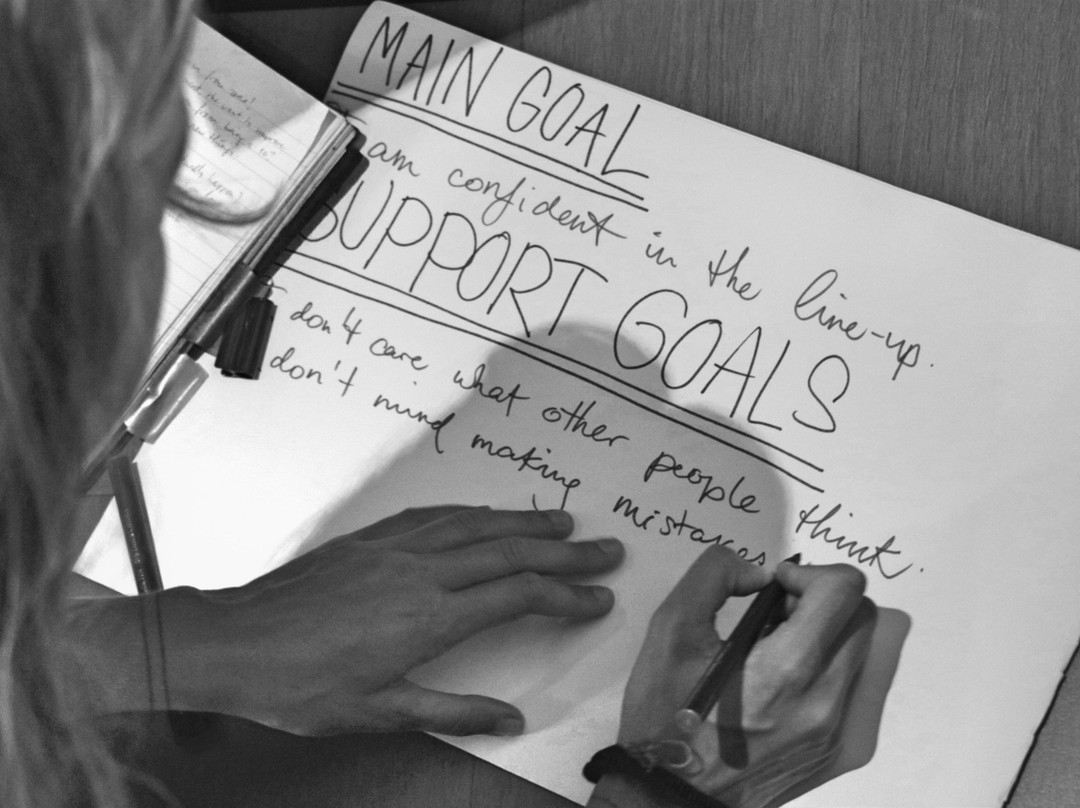 MAIN GOAL
am confident in the line-up.
SUPPORT GOALS
don't care what other people think.
don't mind making mistakes